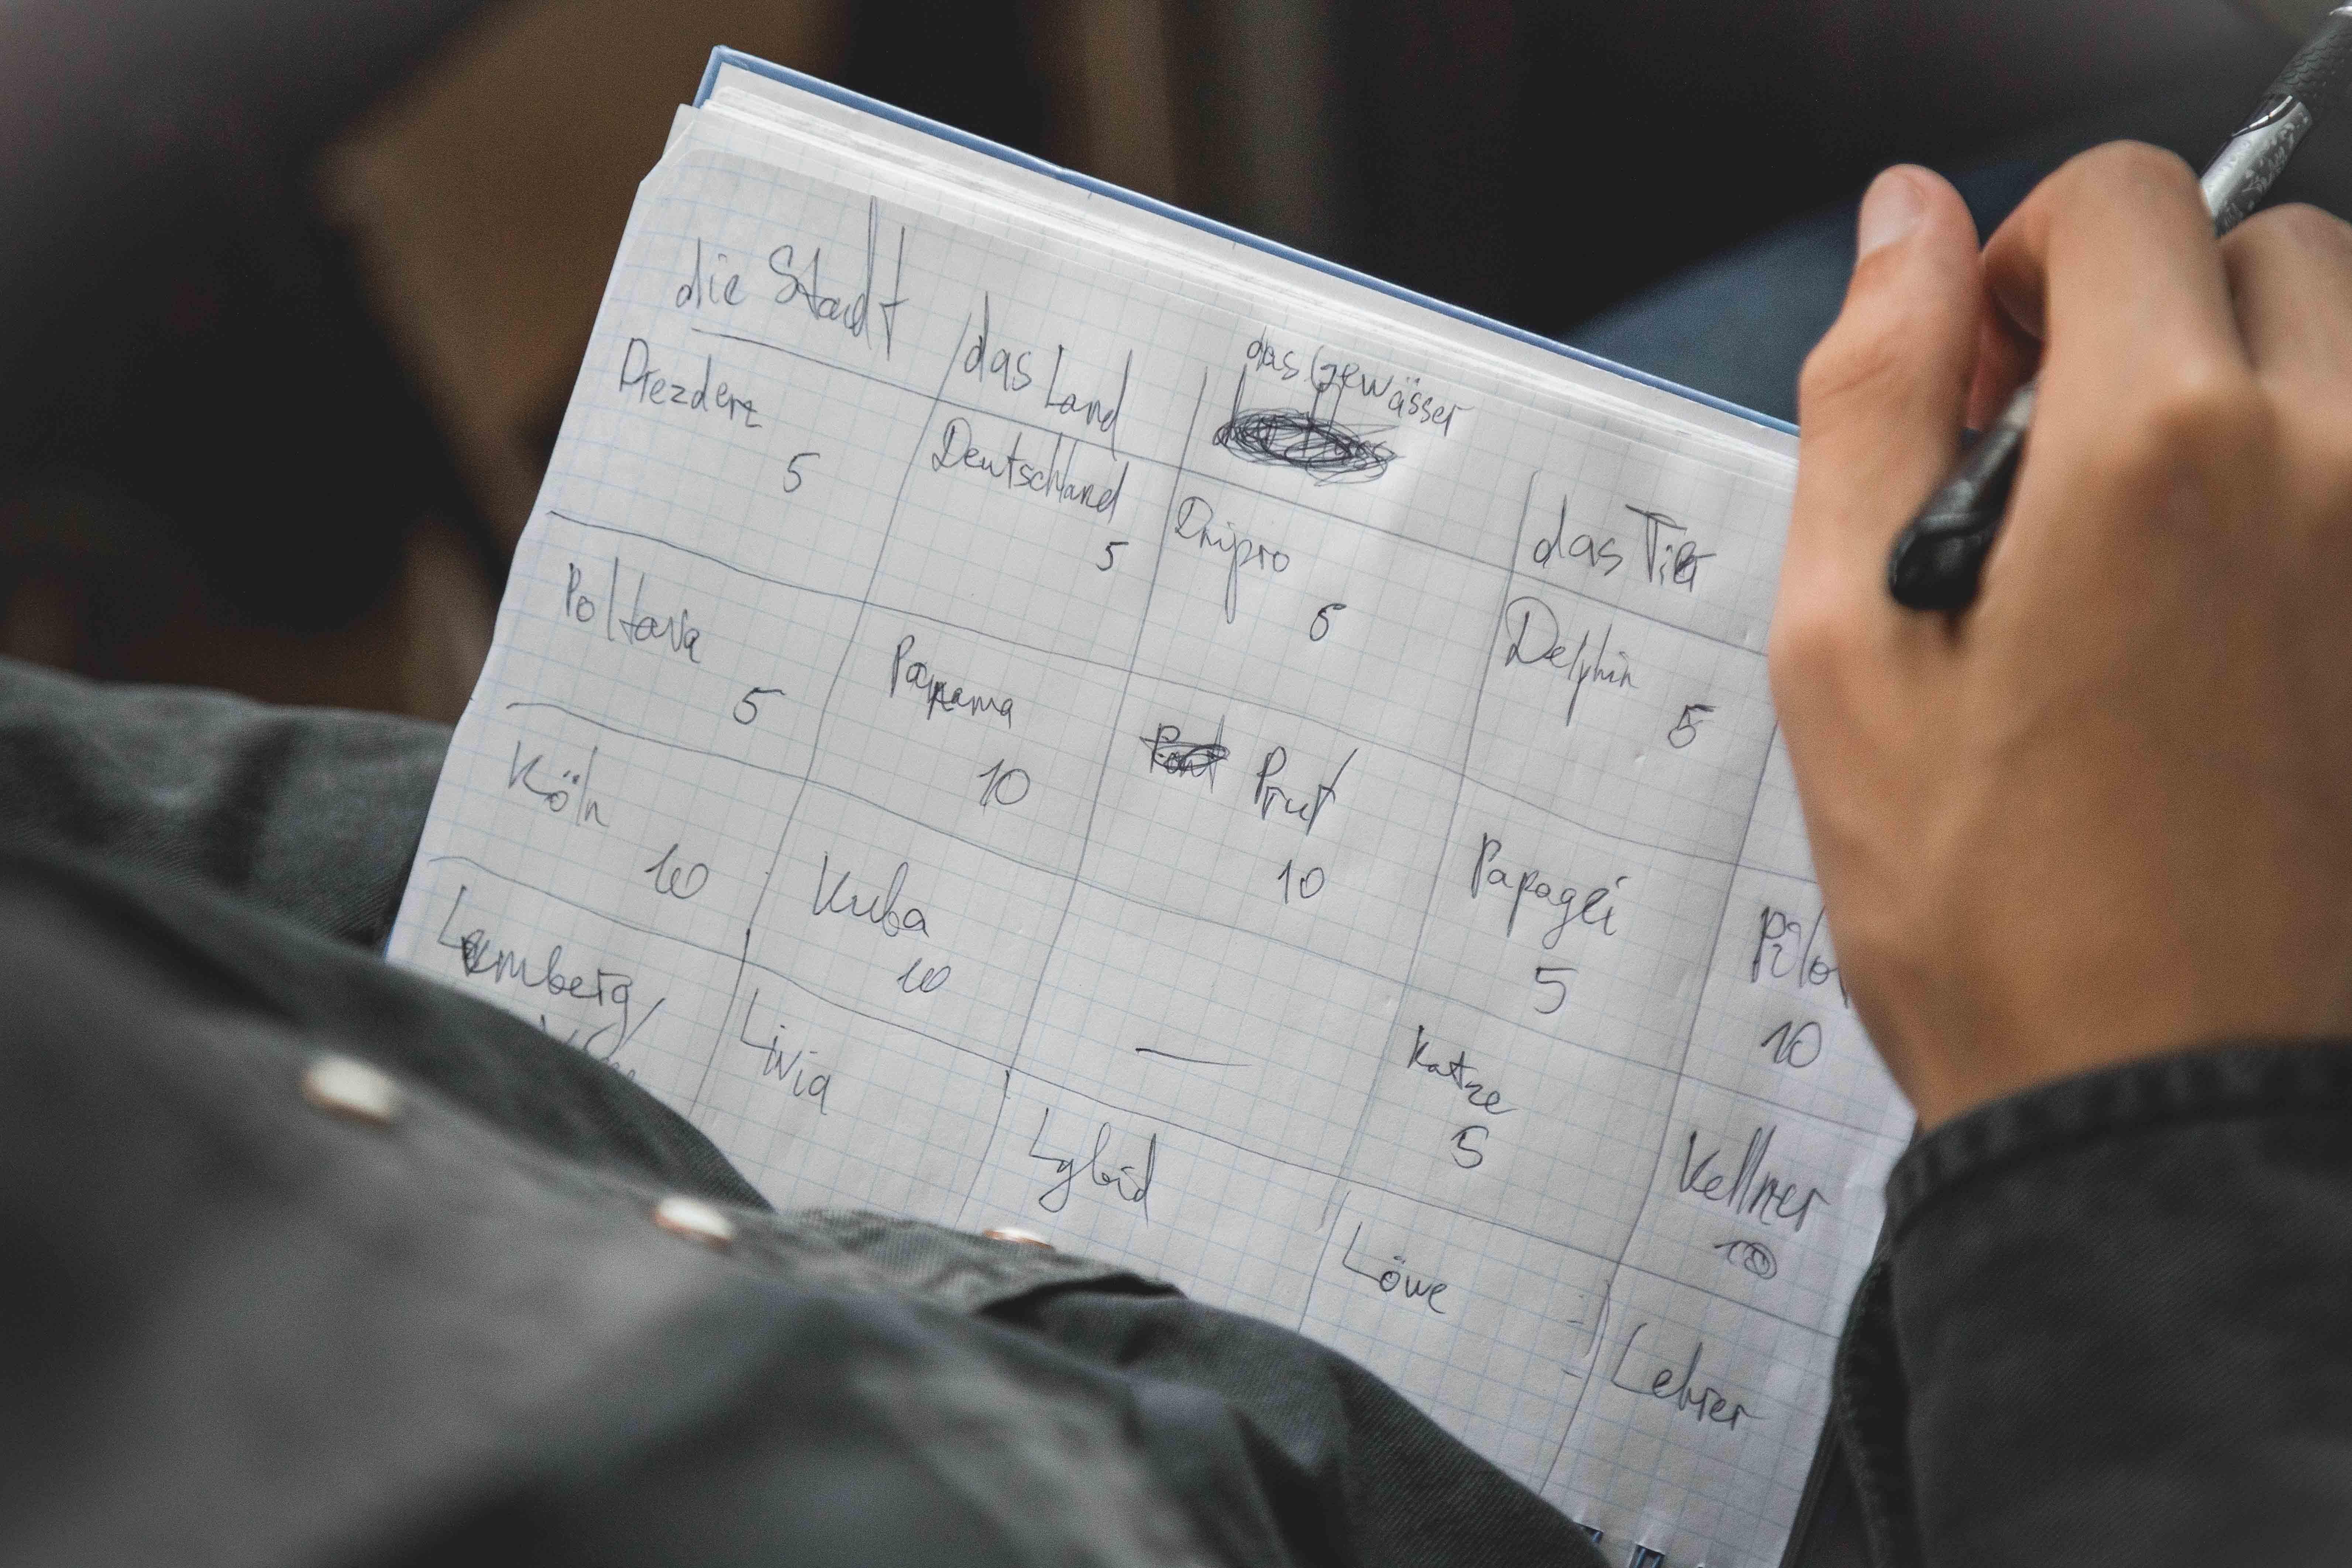 die Stadt das Land das Gewässer das Tier
Drezden Deutschland Dnipro Delphin
5 5 5 5
Poltava Panama Prut Papagei Pilo
5 10 10 5 10
Köln Kuba — Katze Kellner
10 10 5 10
Lemberg/ Livia Lybid Löwe Lehrer